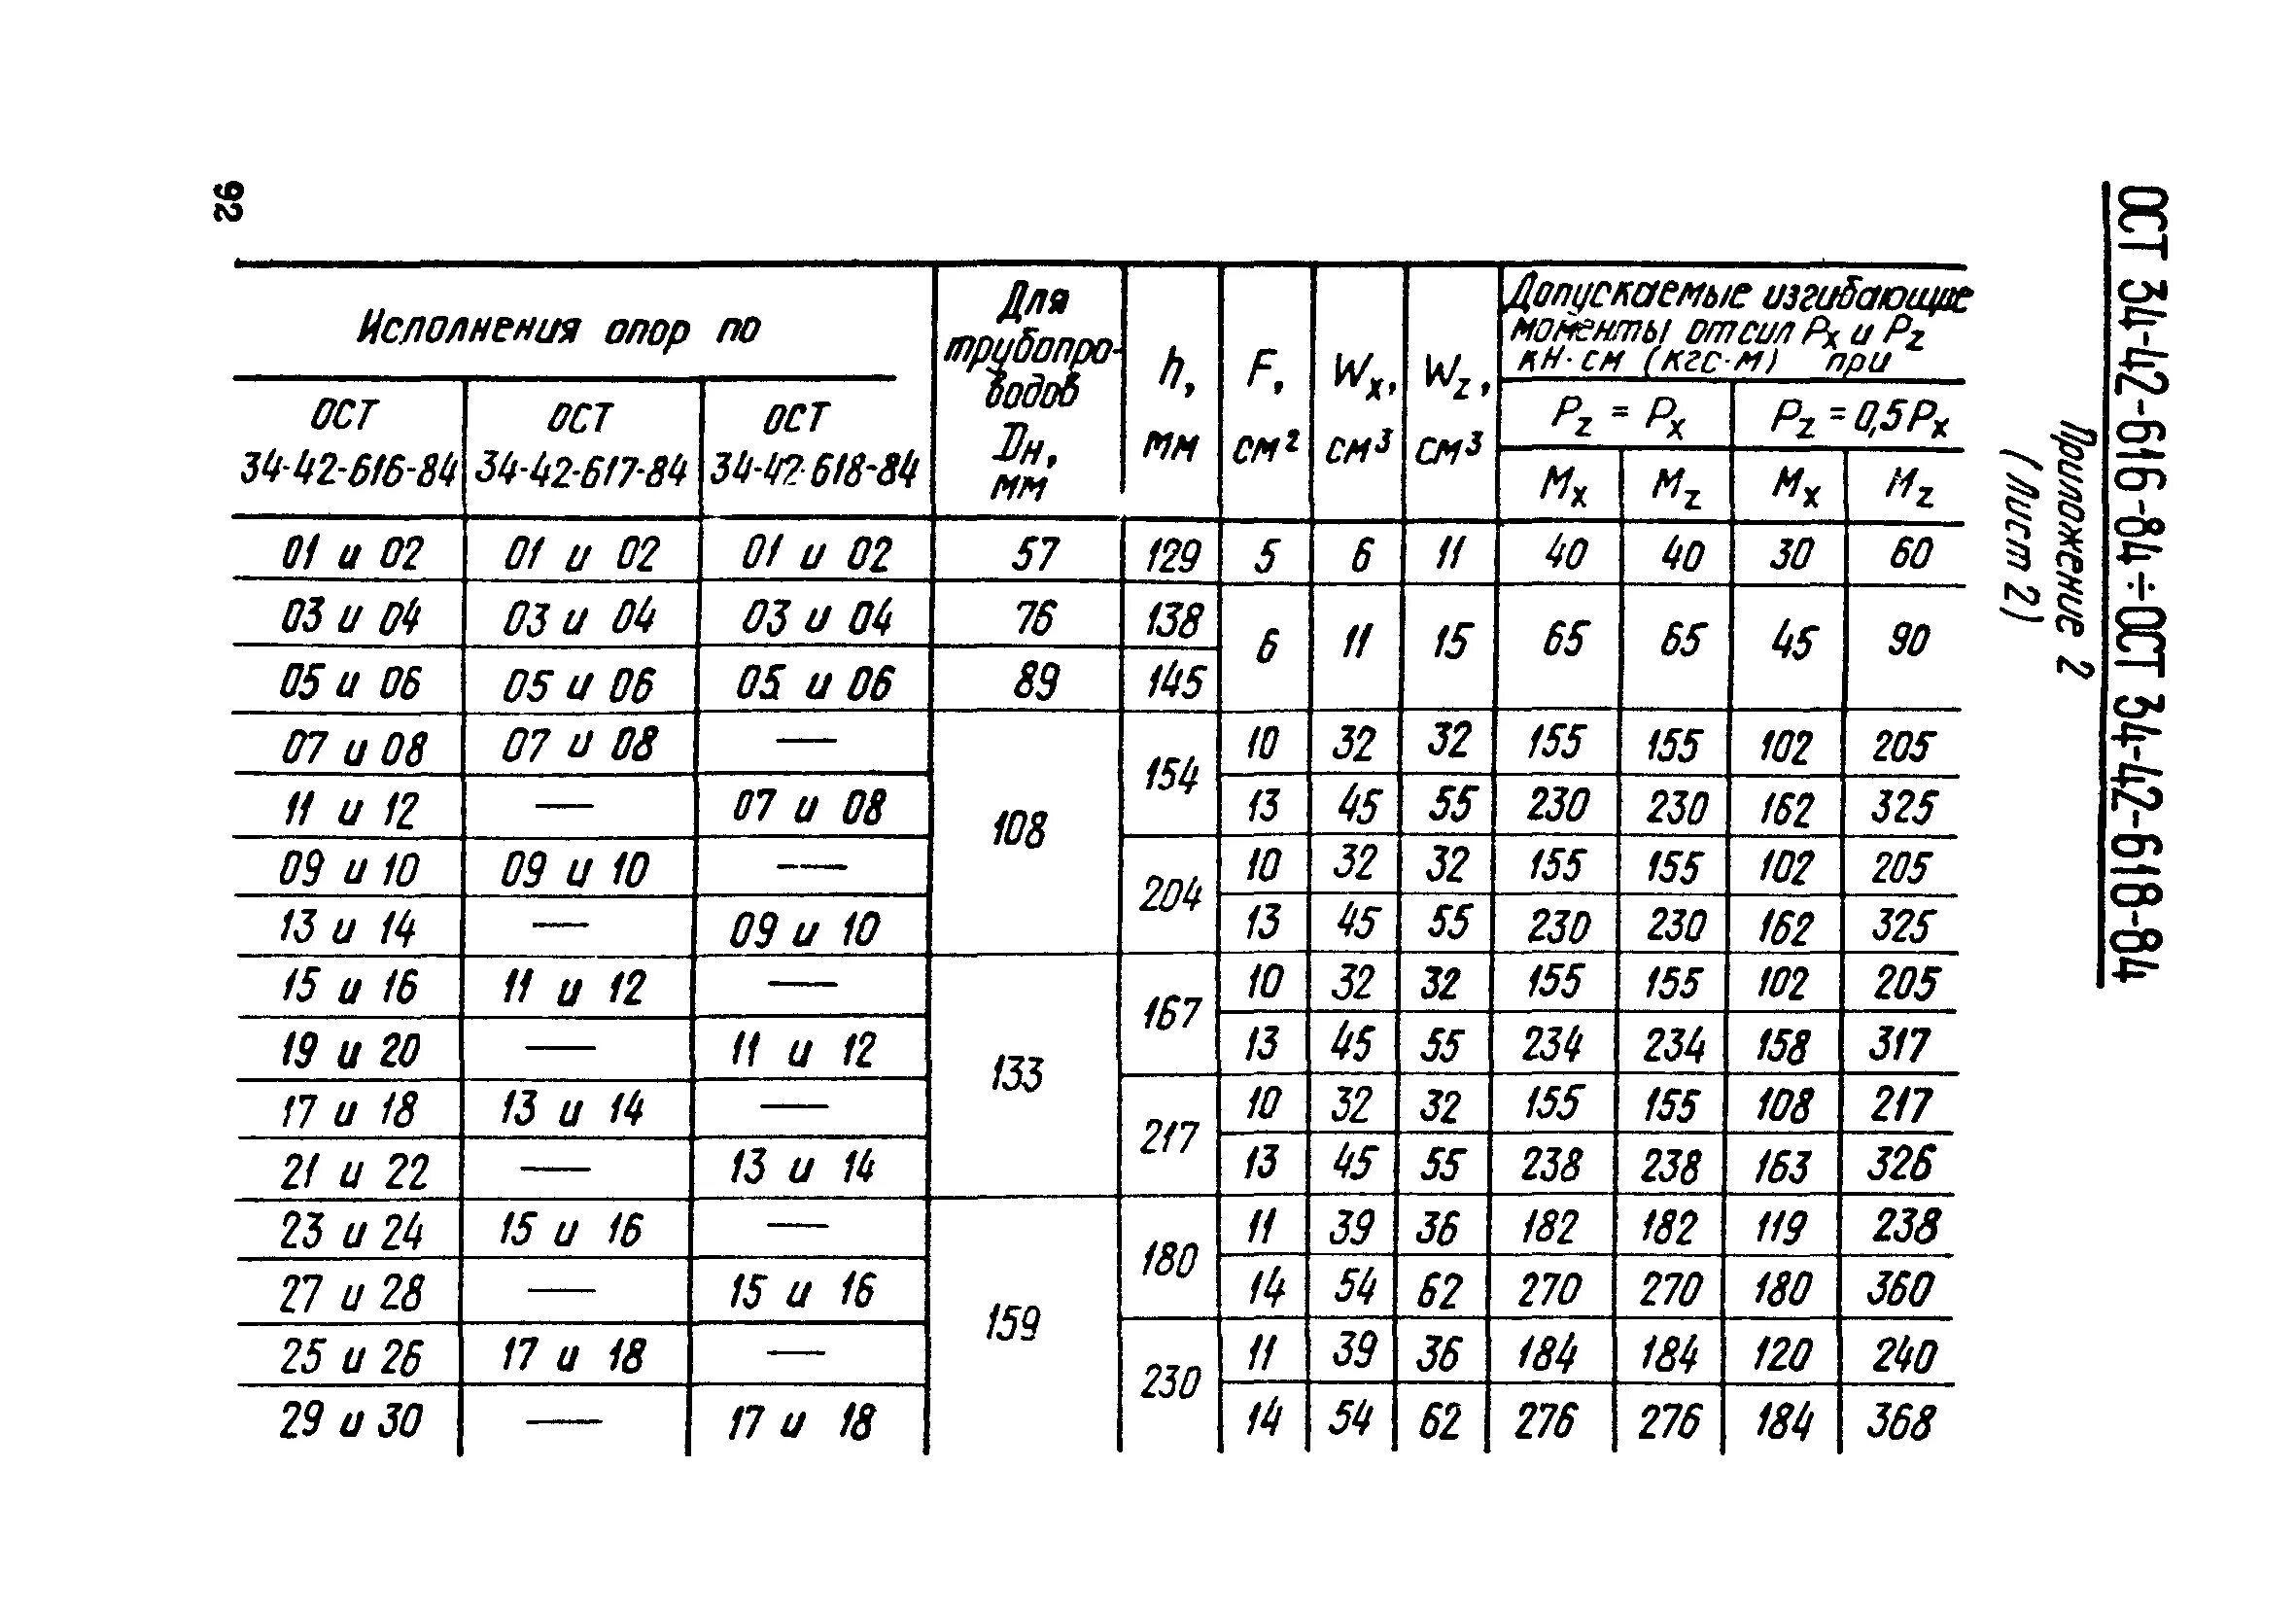 92
ОСТ 34-42-616-84÷ОСТ 34-42-618-84
Приложение 2
(Лист 2)
Исполнения опор по
ОСТ 34-42-616-84
ОСТ 34-42-617-84
ОСТ 34-42-618-84
Для трубопро-
водов
Dн,
мм
h, мм
F, см²
Wx, см³
Wz, см³
Допускаемые изгибающие
моменты от сил Px и Pz
кН·см (кгс·м) при
Pz = Px
Pz = 0,5Px
Mx Mz Mx Mz
01 и 02 01 и 02 01 и 02 57 129 5 6 11 40 40 30 60
03 и 04 03 и 04 03 и 04 76 138 6 11 15 65 65 45 90
05 и 06 05 и 06 05 и 06 89 145
07 и 08 07 и 08 — 108 154 10 32 32 155 155 102 205
11 и 12 — 07 и 08 13 45 55 230 230 162 325
09 и 10 09 и 10 — 204 10 32 32 155 155 102 205
13 и 14 — 09 и 10 13 45 55 230 230 162 325
15 и 16 11 и 12 — 133 167 10 32 32 155 155 102 205
19 и 20 — 11 и 12 13 45 55 234 234 158 317
17 и 18 13 и 14 — 217 10 32 32 155 155 108 217
21 и 22 — 13 и 14 13 45 55 238 238 163 326
23 и 24 15 и 16 — 159 180 11 39 36 182 182 119 238
27 и 28 — 15 и 16 14 54 62 270 270 180 360
25 и 26 17 и 18 — 230 11 39 36 184 184 120 240
29 и 30 — 17 и 18 14 54 62 276 276 184 368